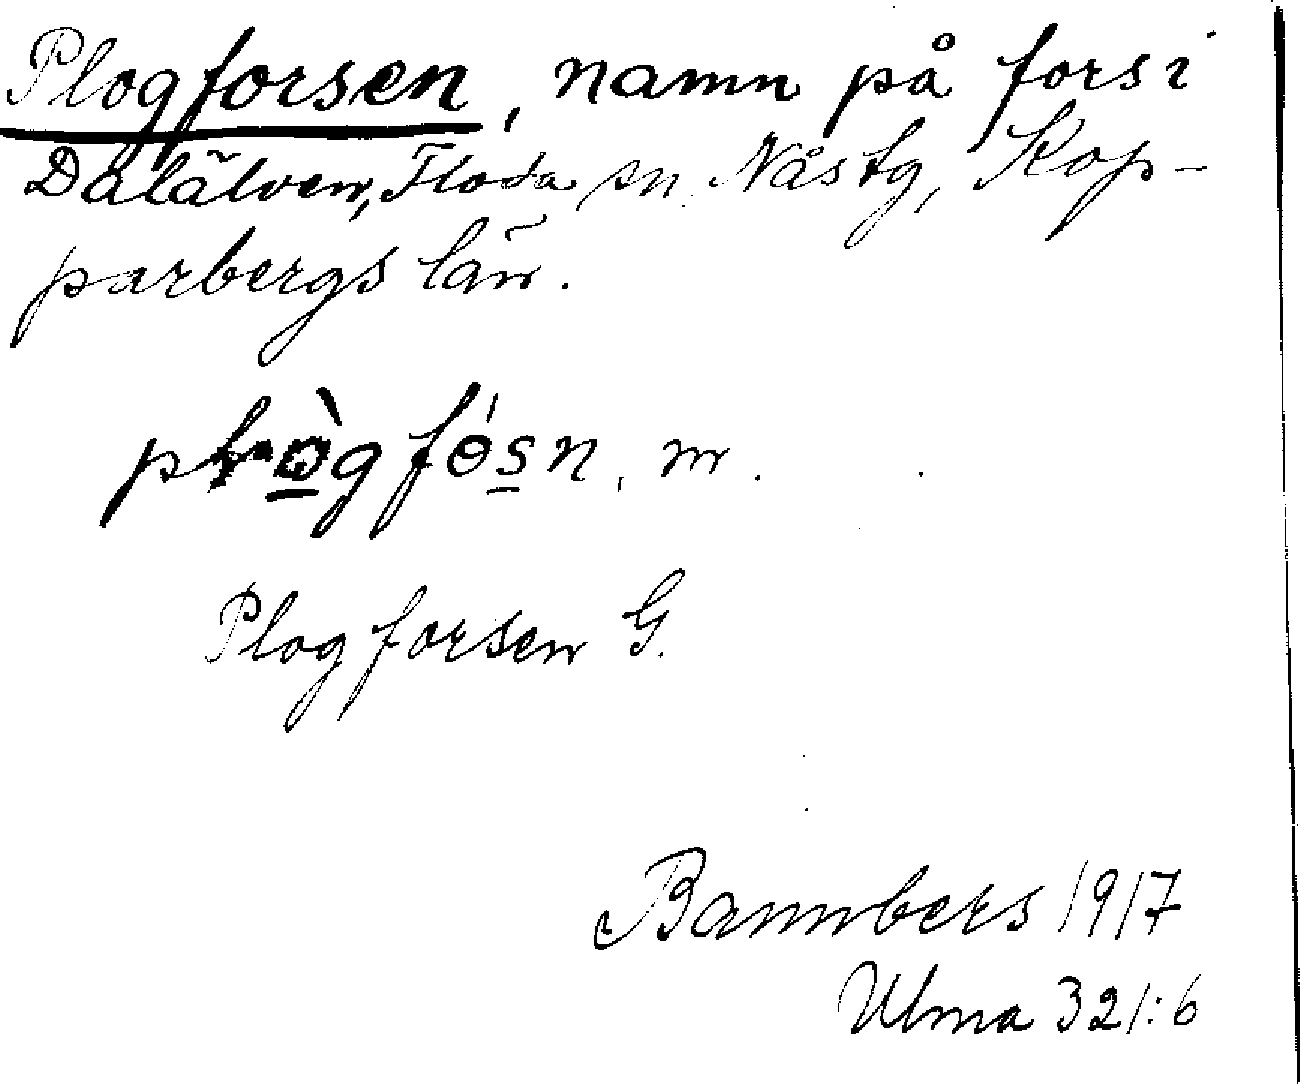 Plogforsen, namn på fors i
Dalälven, Floda sn. Nås tg, Kop-
parbergs län.
plȯ̠̀gfɵ́s̠n, m.
Plogforsen G.
Bannbers 1917
Ulma 321:6